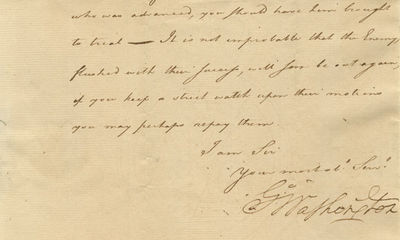 who was advanced, you should have been brought
to trial — It is not improbable that the Enemy
flushed with their success, will soon be out again,
if you keep a strict watch upon their motions
you may perhaps repay them
I am Sir
Your most obt. Servt.
Go: Washington